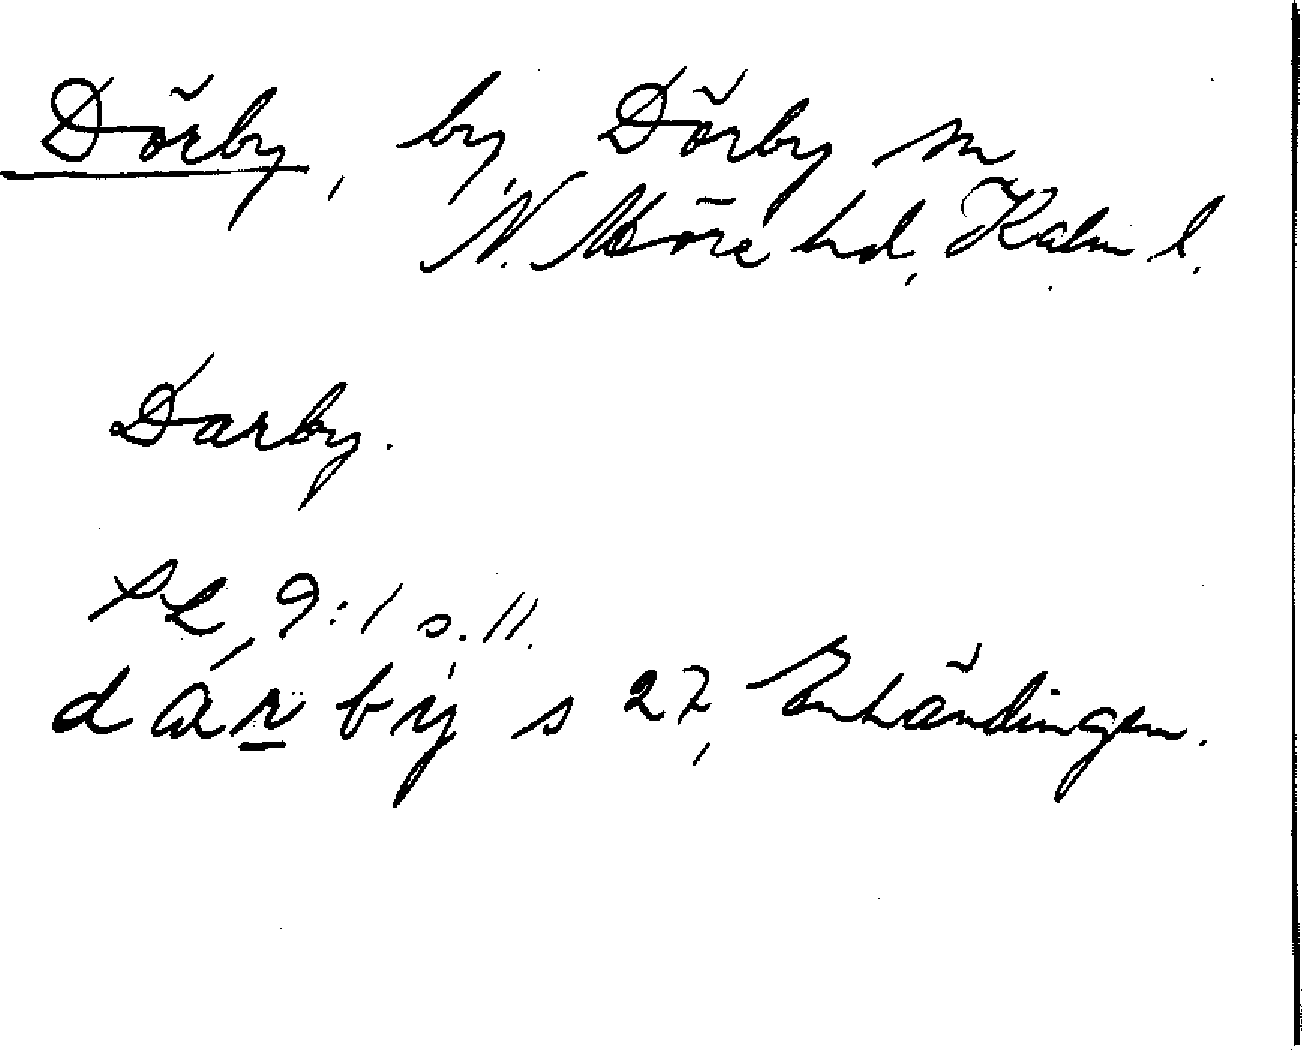 Dörby, by, Dörby sn
N. Möre hd, Kalm l.
Darby.
SL 9:1 s. 11.
dárby s 27, Enhändingen.